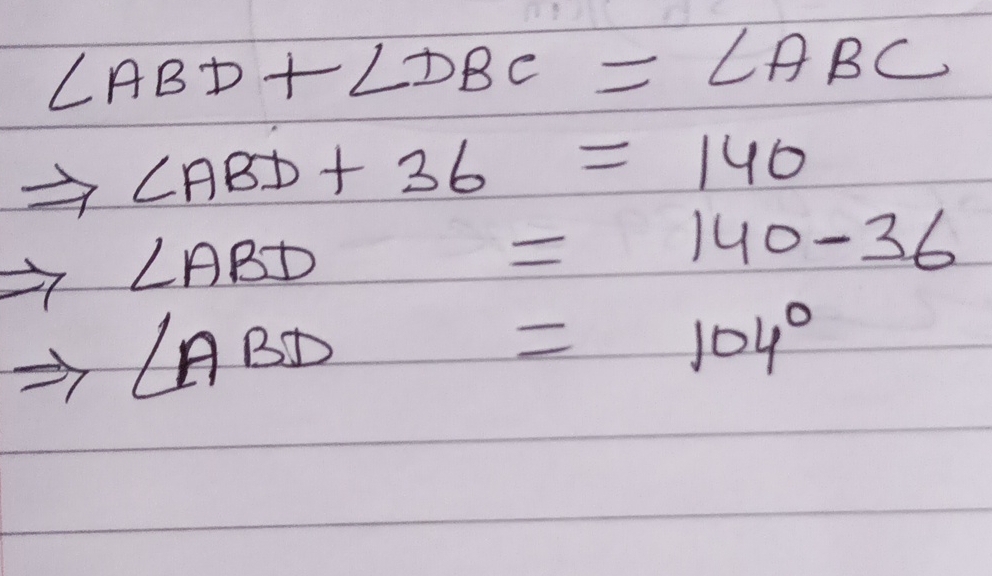 ∠ABD + ∠DBC = ∠ABC
⇒ ∠ABD + 36 = 140
⇒ ∠ABD = 140 - 36
⇒ ∠ABD = 104°